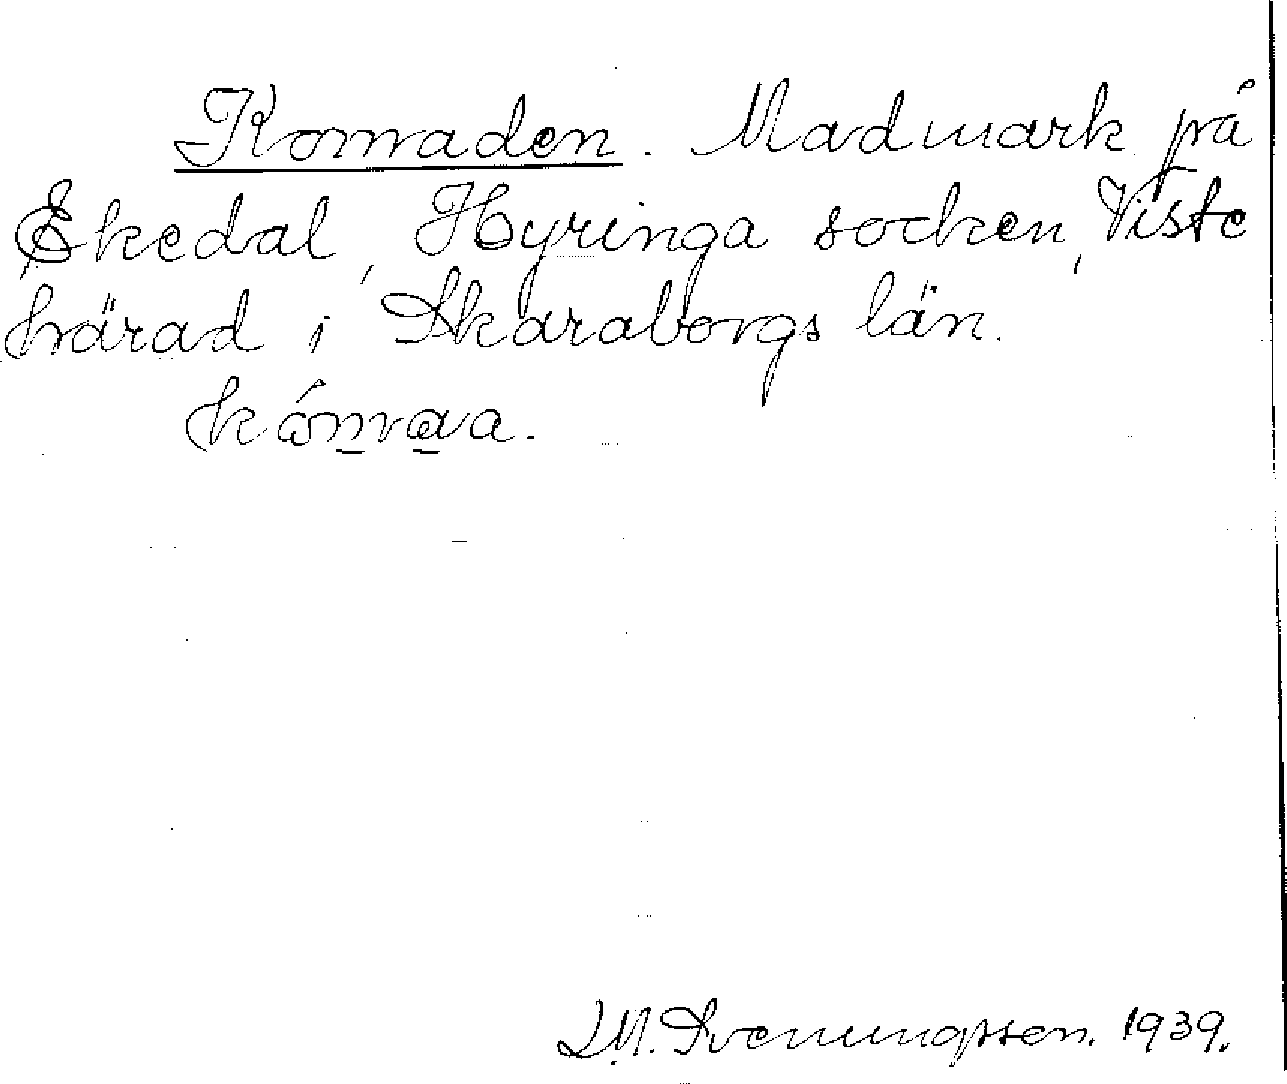 Komaden. Madmark på
Ekedal, Hyringa socken, Viste
härad i Skaraborgs län.
L.M. Svenungsson. 1939.